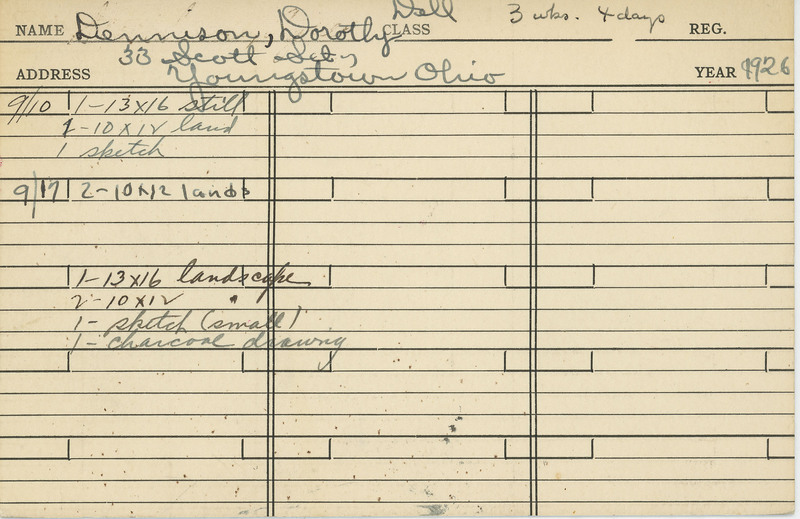 NAME Dennison, Dorothy Dell CLASS 3 wks. 4 days REG.
ADDRESS 33 Scott St., Youngstown Ohio YEAR 1926
9/10 1-13x16 still
1-10x12 land
1 sketch
9/17 2-10x12 lands
1-13x16 landscape
2-10x12 "
1- sketch (small)
1- charcoal drawing